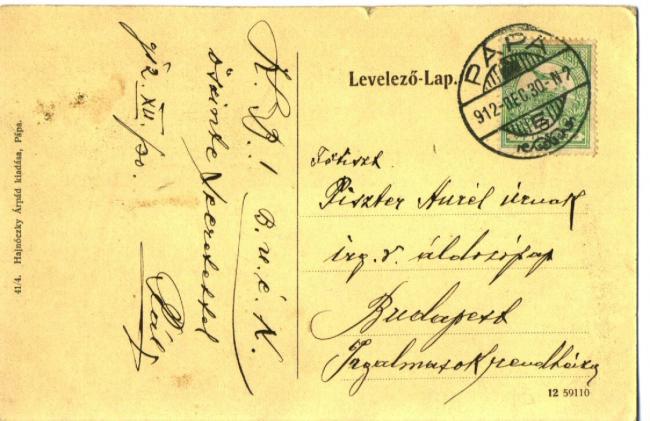 Levelező-Lap.
PÁPA
912-DEC.30-N2
B
K. B.!
B. u. é. k.
őszinte szeretettel
912. XII./30.
Főtiszt
Piszter Aurél úrnak
irg. r. áldozópap
Budapest
Irgalmasok rendháza
12 59110
41/4. Hajnóczky Árpád kiadása, Pápa.